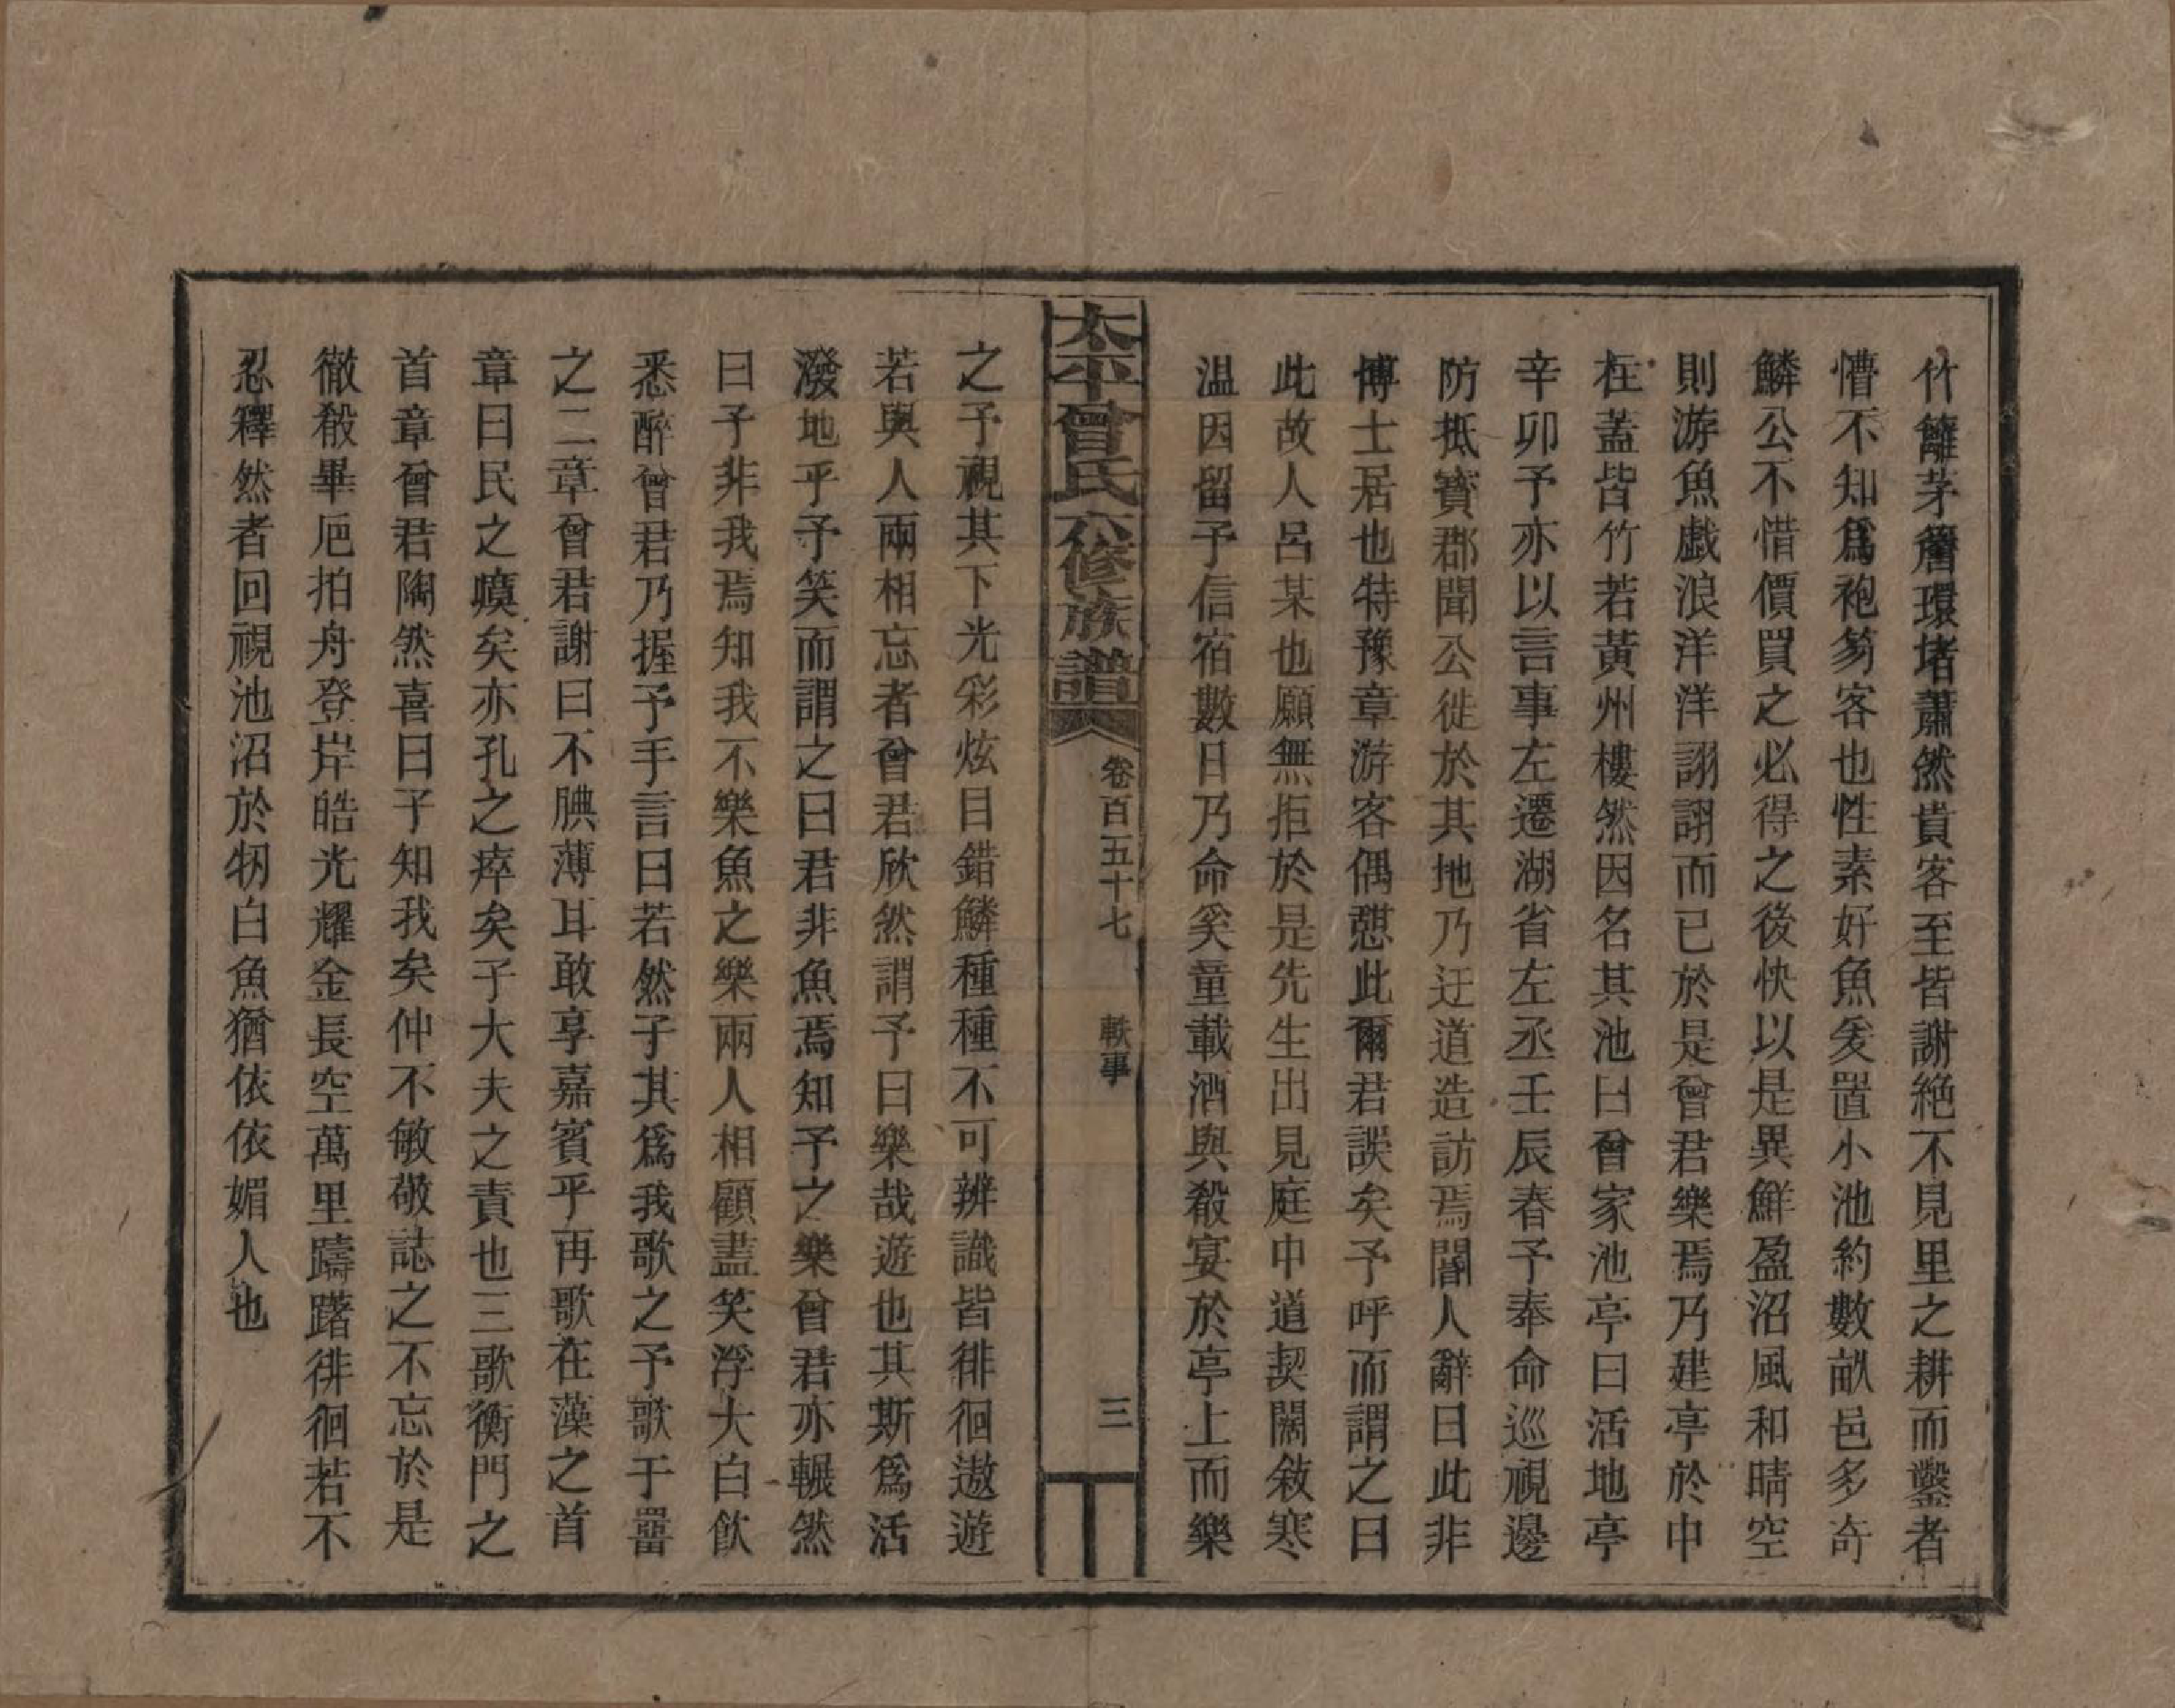 竹籬茅簷環堵蕭然貴客至皆謝絶不見里之耕而鑿者
慒不知爲袍笏客也性素好魚爰置小池約數畝邑多奇
鱗公不惜價買之必得之後快以是異鮮盈沼風和晴空
則游魚戯浪洋洋詡詡而已於是曾君樂焉乃建亭於中
柱蓋皆竹若黃州樓然因名其池曰曾家池亭曰活地亭
辛卯予亦以言事左遷湖省左丞壬辰春予奉命巡視邊
防抵寳郡聞公徙於其地乃迂道造訪焉閽人辭曰此非
博士居也特豫章游客偶憇此爾君誤矣予呼而謂之曰
此故人呂某也願無拒於是先生出見庭中道契闊敘寒
温因留予信宿數日乃命奚童載酒與殽宴於亭上而樂
太平曾氏八修族譜
卷百五十七
軼事
三
之予視其下光彩炫目錯鱗種種不可辨識皆徘徊遨遊
若與人兩相忘者曾君欣然謂予曰樂哉遊也其斯爲活
潑地乎予笑而謂之曰君非魚焉知予之樂曾君亦輾然
曰子非我焉知我不樂魚之樂兩人相顧盡笑浮大白飲
悉醉曾君乃握予手言曰若然子其爲我歌之予歌于罶
之二章曾君謝曰不腆薄耳敢享嘉賓乎再歌在藻之首
章曰民之瘼矣亦孔之瘁矣子大夫之責也三歌衡門之
首章曾君陶然喜曰子知我矣仲不敏敬誌之不忘於是
徹殽畢巵拍舟登岸皓光耀金長空萬里躊躇徘徊若不
忍釋然者回視池沼於牣白魚猶依依媚人也